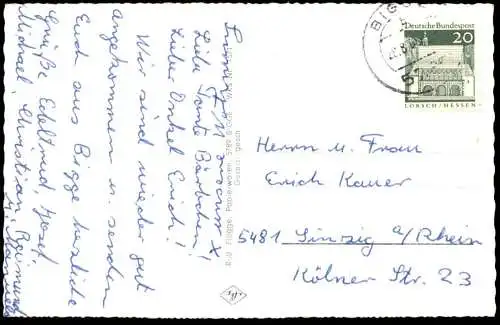 Liebe Tante Bärbchen!
Lieber Onkel Erich!
Wir sind wieder gut
angekommen u. senden
Euch aus Bigge herzliche
Grüße Edeltrud, Josef
Michael, Christian, Raimund
u. Manuela
Flügge, Papierwaren, 5789 Bigge
Deutsche Bundespost
20
LORSCH/HESSEN
Herrn u. Frau
Erich Kauer
5481 Sinzig a/Rhein
Kölner Str. 23